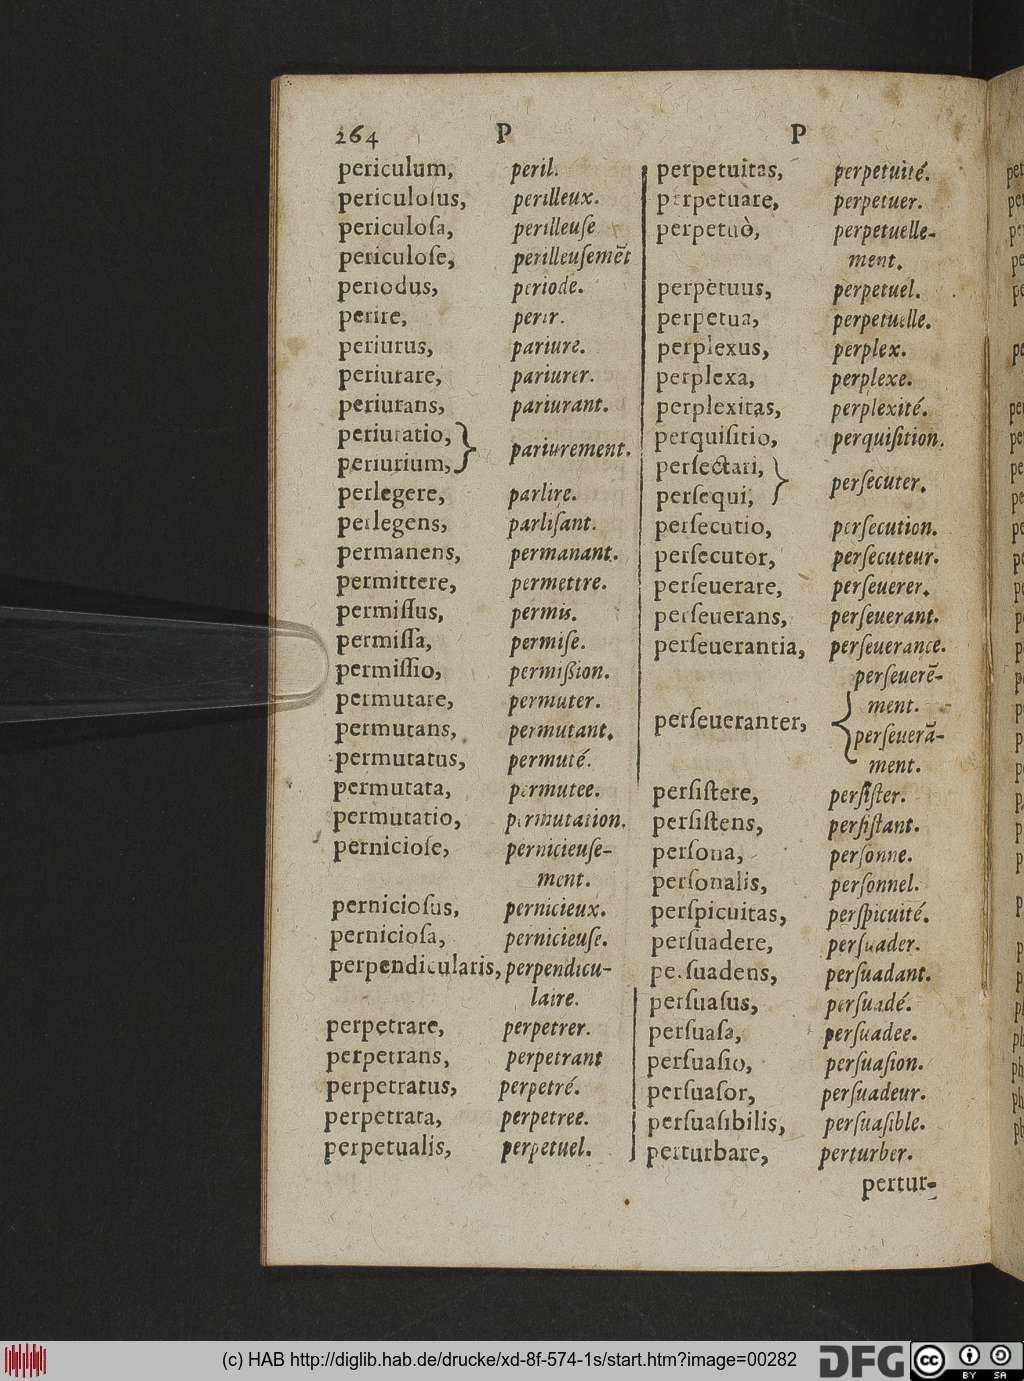 264 P P
periculum, peril.
periculoſus, perilleux.
periculoſa, perilleuſe
periculoſe, perilleuſemēt
periodus, periode.
perire, perir.
periurus, pariure.
periurare, pariurer.
periurans, pariurant.
periuratio,
periurium, } pariurement.
perlegere, parlire.
perlegens, parliſant.
permanens, permanant.
permittere, permettre.
permiſſus, permis.
permiſſa, permiſe.
permiſſio, permißion.
permutare, permuter.
permutans, permutant.
permutatus, permuté.
permutata, permutee.
permutatio, permutation.
pernicioſe, pernicieuſe-
ment.
pernicioſus, pernicieux.
pernicioſa, pernicieuſe.
perpendicularis, perpendicu-
laire.
perpetrare, perpetrer.
perpetrans, perpetrant
perpetratus, perpetré.
perpetrata, perpetree.
perpetualis, perpetuel.
perpetuitas, perpetuité.
perpetuare, perpetuer.
perpetuò, perpetuelle-
ment.
perpetuus, perpetuel.
perpetua, perpetuelle.
perplexus, perplex.
perplexa, perplexe.
perplexitas, perplexité.
perquiſitio, perquiſition.
perſectari,
perſequi, } perſecuter.
perſecutio, perſecution.
perſecutor, perſecuteur.
perſeuerare, perſeuerer.
perſeuerans, perſeuerant.
perſeuerantia, perſeuerance.
perſeueranter, { perſeuerē-
ment.
perſeuerā-
ment.
perſiſtere, perſiſter.
perſiſtens, perſiſtant.
perſona, perſonne.
perſonalis, perſonnel.
perſpicuitas, perſpicuité.
perſuadere, perſuader.
perſuadens, perſuadant.
perſuaſus, perſuadé.
perſuaſa, perſuadee.
perſuaſio, perſuaſion.
perſuaſor, perſuadeur.
perſuaſibilis, perſuaſible.
perturbare, perturber.
pertur-
(c) HAB http://diglib.hab.de/drucke/xd-8f-574-1s/start.htm?image=00282
DFG
cc BY SA